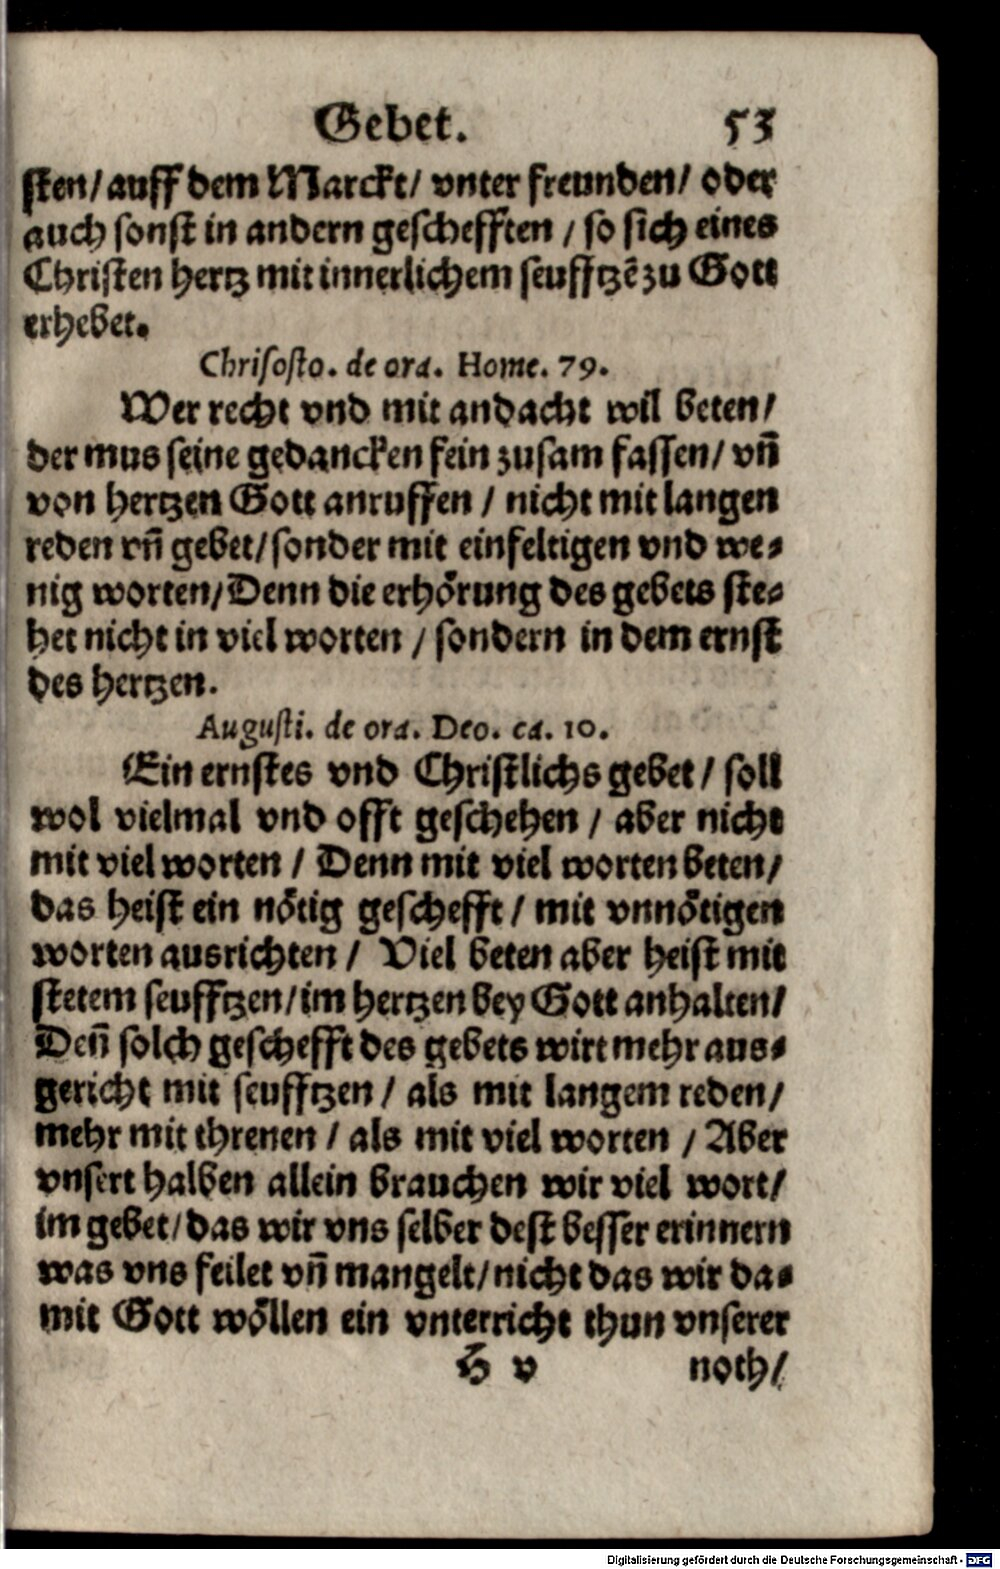 Gebet. 53
sten/ auff dem Marckt/ vnter freunden/ oder
auch sonst in andern geschefften / so sich eines
Christen hertz mit innerlichem seufftzē zu Gott
erhebet.
Chrisosto. de ora. Home. 79.
Wer recht vnd mit andacht wil beten/
der mus seine gedancken fein zusam fassen/ vñ
von hertzen Gott anruffen / nicht mit langen
reden vñ gebet/ sonder mit einfeltigen vnd we-
nig worten/ Denn die erhörung des gebets ste-
het nicht in viel worten / sondern in dem ernst
des hertzen.
Augusti. de ora. Deo. ca. 10.
Ein ernstes vnd Christlichs gebet / soll
wol vielmal vnd offt geschehen / aber nicht
mit viel worten / Denn mit viel worten beten/
das heist ein nötig geschefft / mit vnnötigen
worten ausrichten / Viel beten aber heist mit
stetem seufftzen/ im hertzen bey Gott anhalten/
Deñ solch geschefft des gebets wirt mehr aus-
gericht mit seufftzen / als mit langem reden/
mehr mit threnen / als mit viel worten / Aber
vnsert halben allein brauchen wir viel wort/
im gebet/ das wir vns selber dest besser erinnern
was vns feilet vñ mangelt/ nicht das wir da-
mit Gott wöllen ein vnterricht thun vnserer
H v noth/
Digitalisierung gefördert durch die Deutsche Forschungsgemeinschaft - DFG